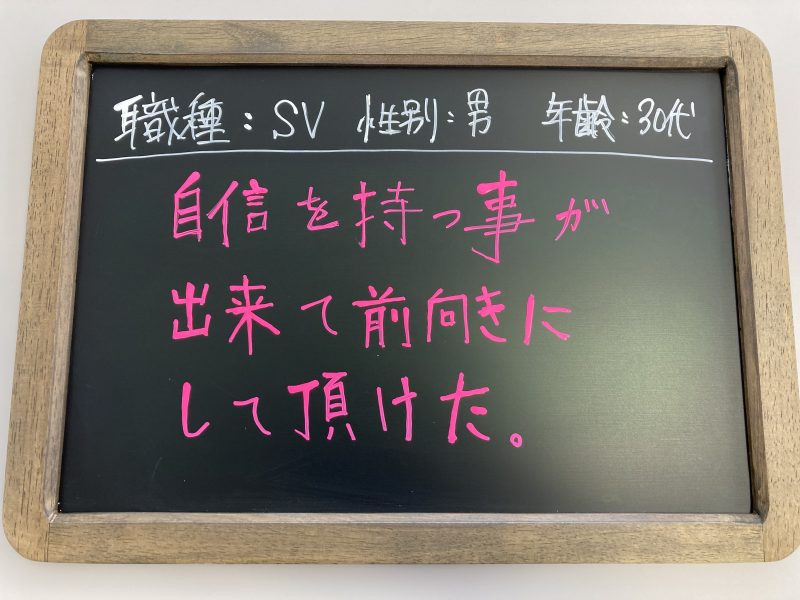 職種：SV 性別：男 年齢：30代
自信を持つ事が
出来て前向きに
して頂けた。